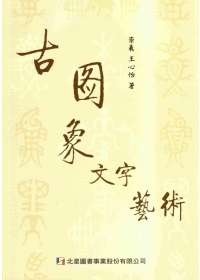 崇羲 王心怡 著
古
图
象
文字
藝術
北星圖書事業股份有限公司